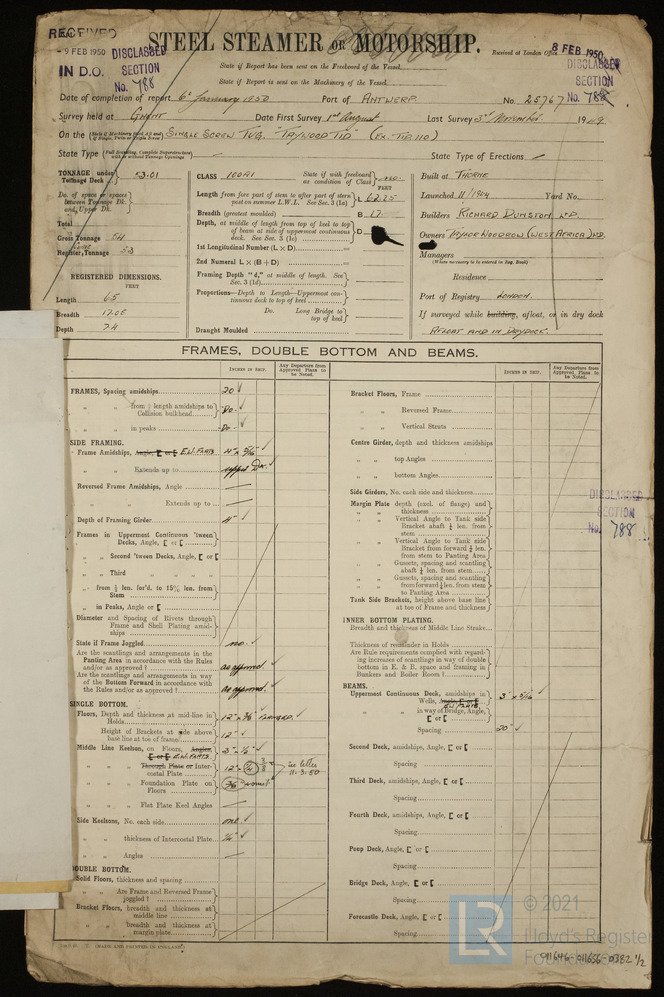 RECEIVED
- 9 FEB 1950
IN D.O.
DISCLASSED
SECTION
No. 788
STEEL STEAMER OR MOTORSHIP.
Received at London Office
8 FEB 1950
DISCLASSED
SECTION
No. 788
State if Report has been sent on the Freeboard of the Vessel
State if Report is sent on the Machinery of the Vessel
Date of completion of report 6th January 1950 Port of ANTWERP. No. 25767
Survey held at GHENT Date First Survey 1st August Last Survey 1949.
On the SINGLE SCREW TUG. "TAYWOOD TID" (EX. TID 110)
State Type
State Type of Erections
TONNAGE under Tonnage Deck 53.01
Do. of space or spaces between Tonnage Dk. and Upper Dk.
Total
Gross Tonnage 54
Register Tonnage
REGISTERED DIMENSIONS.
FEET
Length 65
Breadth 17.05
Depth 7.4
CLASS 100A1
State if with freeboard as condition of Class
FEET
Length from fore part of stem to after part of stern post on summer L.W.L. See Sec. 3 (1a) L 62.25
Breadth (greatest moulded) B 17
Depth, at middle of length from top of keel to top of beam at side of uppermost continuous deck. See Sec. 3 (1c) D
1st Longitudinal Number (L × D)
2nd Numeral L × (B + D)
Framing Depth "d," at middle of length. See Sec. 3 (1d)
Proportions—Depth to Length—Uppermost continuous deck to top of keel
Do. Long Bridge to top of keel
Draught Moulded
Built at THORNE
Launched 11/1944 Yard No.
Builders RICHARD DUNSTON LTD.
Owners TAYLOR WOODROW (WEST AFRICA) LTD.
Managers
(Where necessary to be entered in Reg. Book)
Residence
Port of Registry LONDON.
If surveyed while building, afloat, or in dry dock
AFLOAT AND IN DRYDOCK.
FRAMES, DOUBLE BOTTOM AND BEAMS.
INCHES IN SHIP.
Any Departure from Approved Plans to be Noted.
INCHES IN SHIP.
Any Departure from Approved Plans to be Noted.
FRAMES, Spacing amidships 20
" " from ⅕ length amidships to Collision bulkhead Do.
" " in peaks Do.
SIDE FRAMING.
Frame Amidships, Angle, [ or [ E.W. FLATS 4" x 5/16
" " Extends up to upper Dk.
Reversed Frame Amidships, Angle
" " Extends up to
Depth of Framing Girder 4"
Frames in Uppermost Continuous 'tween Decks, Angle, [ or [
" Second 'tween Decks, Angle, [ or [
" Third " " "
" from ⅕ len. for'd. to 15% len. from Stem
" in Peaks, Angle or [
Diameter and Spacing of Rivets through Frame and Shell Plating amidships
State if Frame Joggled no.
Are the scantlings and arrangements in the Panting Area in accordance with the Rules and/or as approved? as approved.
Are the scantlings and arrangements in way of the Bottom Forward in accordance with the Rules and/or as approved? as approved.
SINGLE BOTTOM.
Floors, Depth and thickness at mid-line in Holds FLANGED.
Height of Brackets at side above base line at toe of frame 12"
Middle Line Keelson, on Floors, Angles, [ or [ E.W. FLATS
" " Through Plate or Intercostal Plate see letter 11.3.50
" " Foundation Plate on Floors
" " Flat Plate Keel Angles
Side Keelsons, No. each side one.
" " thickness of Intercostal Plate
" " Angles
DOUBLE BOTTOM.
Solid Floors, thickness and spacing
" " Are Frame and Reversed Frame joggled?
Bracket Floors, breadth and thickness at middle line
" " breadth and thickness at margin plate
Bracket Floors, Frame
" " Reversed Frame
" " Vertical Struts
Centre Girder, depth and thickness amidships
" " top Angles
" " bottom Angles
Side Girders, No. each side and thickness
Margin Plate depth (excl. of flange) and thickness
" " Vertical Angle to Tank side Bracket abaft ⅕ len. from stem
" " Vertical Angle to Tank side Bracket from forward ⅕ len. from stem to Panting Area
" " Gussets, spacing and scantling abaft ⅕ len. from stem
" " Gussets, spacing and scantling from forward ⅕ len. from stem to Panting Area
Tank Side Brackets, height above base line at toe of Frame and thickness
INNER BOTTOM PLATING.
Breadth and thickness of Middle Line Strake
Thickness of remainder in Holds
Are Rule requirements complied with regarding increases of scantlings in way of double bottom in E. & B. space and framing in Bunkers and Boiler Room?
BEAMS.
Uppermost Continuous Deck, amidships in Wells, Angle, [ or [ E.W. FLATS. 3" x 5/16
" " in way of Bridge, Angle, [ or [
Spacing 20"
Second Deck, amidships, Angle, [ or [
Spacing
Third Deck, amidships, Angle, [ or [
Spacing
Fourth Deck, amidships, Angle, [ or [
Spacing
Poop Deck, Angle, [ or [
Spacing
Bridge Deck, Angle, [ or [
Spacing
Forecastle Deck, Angle, [ or [
Spacing
DISCLASSED
SECTION
No. 788
(MADE AND PRINTED IN ENGLAND)
LR
© 2021
Lloyd's Register
Foundation
011646-011656-0382 1/2